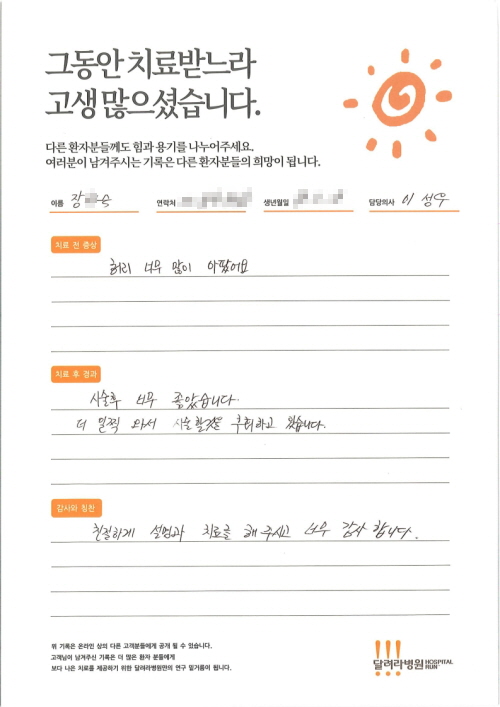 그동안 치료받느라
고생 많으셨습니다.
다른 환자분들께도 힘과 용기를 나누어주세요.
여러분이 남겨주시는 기록은 다른 환자분들의 희망이 됩니다.
이름 장 숙 연락처 생년월일 담당의사 이 성우
치료 전 증상
허리 너무 많이 아팠어요
치료 후 경과
시술후 너무 좋았습니다.
더 일찍 와서 시술할것을 후회하고 있습니다.
감사와 칭찬
친절하게 설명과 치료를 해 주시고 너무 감사 합니다.
위 기록은 온라인 상의 다른 고객분들에게 공개 될 수 있습니다.
고객님이 남겨주신 기록은 더 많은 환자 분들에게
보다 나은 치료를 제공하기 위한 달려라병원만의 연구 밑거름이 됩니다.
달려라병원 HOSPITAL RUN